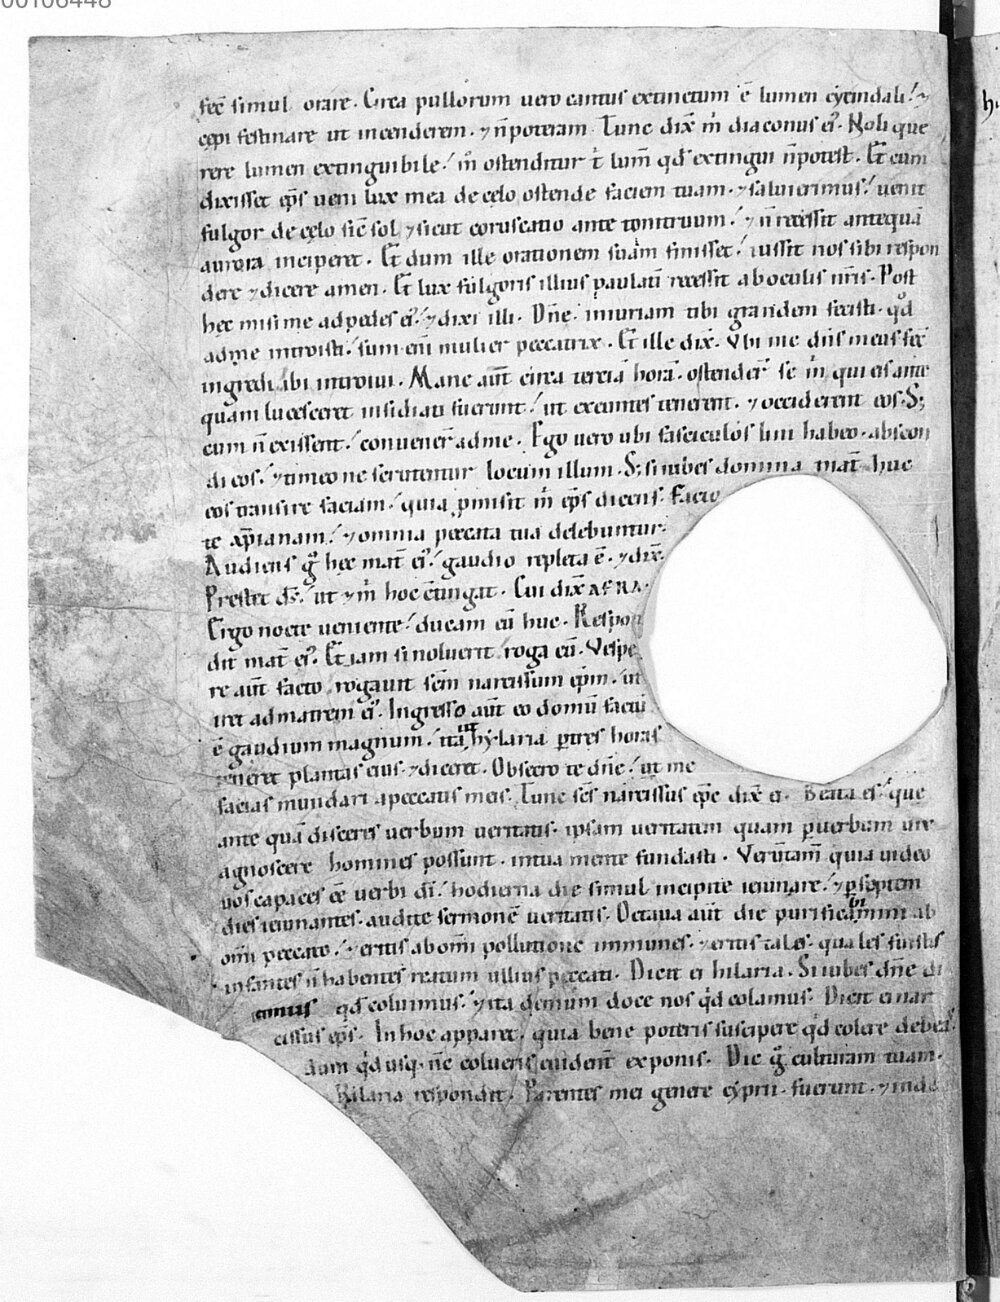 00106448
fec̄ simul orare. Circa pullorum uero cantus extinctum ē lumen cycindali.
cepi festinare ut incenderem. ⁊ n̄ poteram. Tunc dix̄ m̍ diaconus ei᷒. Noli que
rere lumen extinguibile. m̍ ostenditur t̍ lum̄ qd̄ extingui n̄ potest. Et cum
dixisset ep̄s ueni lux mea de cęlo ostende faciem tuam. ⁊ salui erimus. uenit
fulgor de cęlo sic̄ sol ⁊ sicut coruscatio ante tonitruum. ⁊ n̄ recessit antequā
aurora inciperet. Et dum ille orationem suam finisset. iussit nos sibi respon
dere ⁊ dicere amen. Et lux fulgoris illius paulatī recessit ab oculis nr̄is. Post
hęc misi me ad pedes ei᷒. ⁊ dixi illi. Dn̄e. iniuriam tibi grandem fecisti. qd̄
ad me introisti. sum enī mulier peccatrix. Et ille dix̄. Vbi me dn̄s meus fec̄
ingredi ibi introiui. Mane aūt circa terciā horā. ostender̄ se m̍ qui eis ante
quam lucesceret insidiati fuerunt. ut exeuntes tenerent. ⁊ occiderent eos. S;
cum n̄ exissent. conuener̄ ad me. Ego uero ubi fasciculos lini habeo. abscon
di eos. ⁊ timeo ne scrutentur locum illum. S; si iubes domina mat̄ huc
eos transire faciam. quia p̄misit m̍ ep̄s dicens. Facio
te xp̄ianam. ⁊ omnia peccata tua delebuntur.
Audiens g̊ hęc mat̄ ei᷒. gaudio repleta ē. ⁊ dix̄.
Prestet ds̄. ut ⁊ m̍ hoc c̄tingat. Cui dix̄ AFRA.
Ergo nocte ueniente. ducam eū huc. Respon
dit mat̄ ei᷒. Et iam si noluerit roga eū. Vespe
re aūt facto rogauit sc̄m narcissum ep̄m. ut
iret ad matrem ei᷒. Ingresso aūt eo domū factū
ē gaudium magnum. ita ut hylaria p̱ tres horas
teneret plantas eius. ⁊ diceret. Obsecro te dn̄e. ut me
facias mundari a peccatis meis. Tunc sc̄s narcissus ep̄c dix̄ ei. Beata es. que
ante quā disceres uerbum ueritatis. ipsam ueritatem quam p̱ uerbum uix
agnoscere homines possunt. in tua mente fundasti. Verūtam̄ quia uideo
uos capaces eē uerbi dī. hodierna die simul incipite ieiunare. ⁊ p̱ septem
dies ieiunantes. audite sermonē ueritatis. Octaua aūt die purificabimini ab
om̄i peccato. ⁊ eritis ab om̄i pollutione immunes. ⁊ eritis tales. quales fuistis
infantes n̄ habentes reatum ullius peccati. Dicit ei hilaria. Si iubes dn̄e di
cimus qd̄ coluimus. ⁊ ita demum doce nos qd̄ colamus. Dicit ei nar
cissus ep̄s. In hoc apparet. quia bene poteris suscipere qd̄ colere debeas.
dum qd̄ usq. nc̄ colueris euident̄ exponis. Dic g̊ culturam tuam.
Hilaria respondit. Parentes mei genere cyprii. fuerunt. ⁊ inde